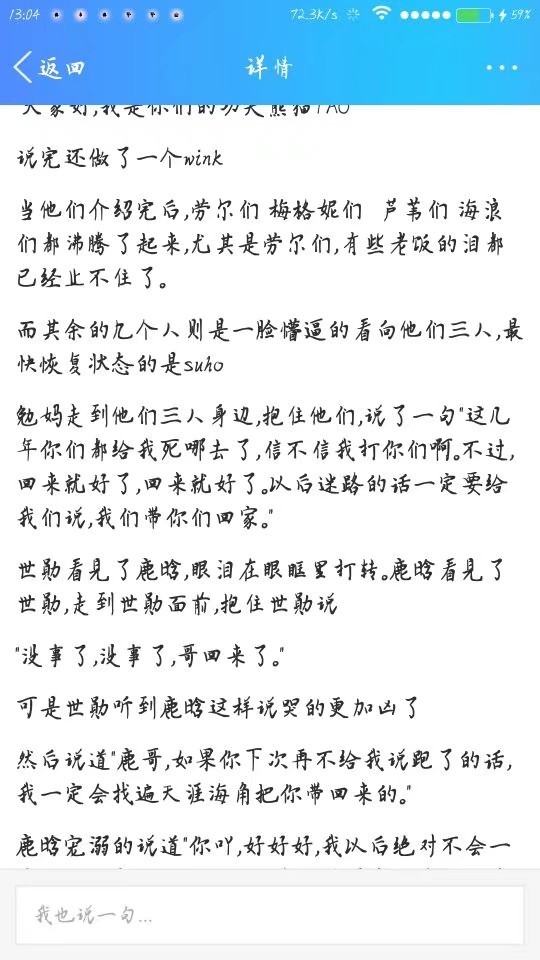 13:04
72.3K/s
59%
返回
详情
大家好,我是你们的功夫熊猫TAO
说完还做了一个wink
当他们介绍完后,劳尔们 梅格妮们 芦苇们 海浪
们都沸腾了起来,尤其是劳尔们,有些老饭的泪都
已经止不住了。
而其余的几个人则是一脸懵逼的看向他们三人,最
快恢复状态的是suho
勉妈走到他们三人身边,抱住他们,说了一句"这几
年你们都给我死哪去了,信不信我打你们啊。不过,
回来就好了,回来就好了。以后迷路的话一定要给
我们说,我们带你们回家。"
世勋看见了鹿晗,眼泪在眼眶里打转。鹿晗看见了
世勋,走到世勋面前,抱住世勋说
"没事了,没事了,哥回来了。"
可是世勋听到鹿晗这样说哭的更加凶了
然后说道"鹿哥,如果你下次再不给我说跑了的话,
我一定会找遍天涯海角把你带回来的。"
鹿晗宠溺的说道"你吖,好好好,我以后绝对不会一
我也说一句...